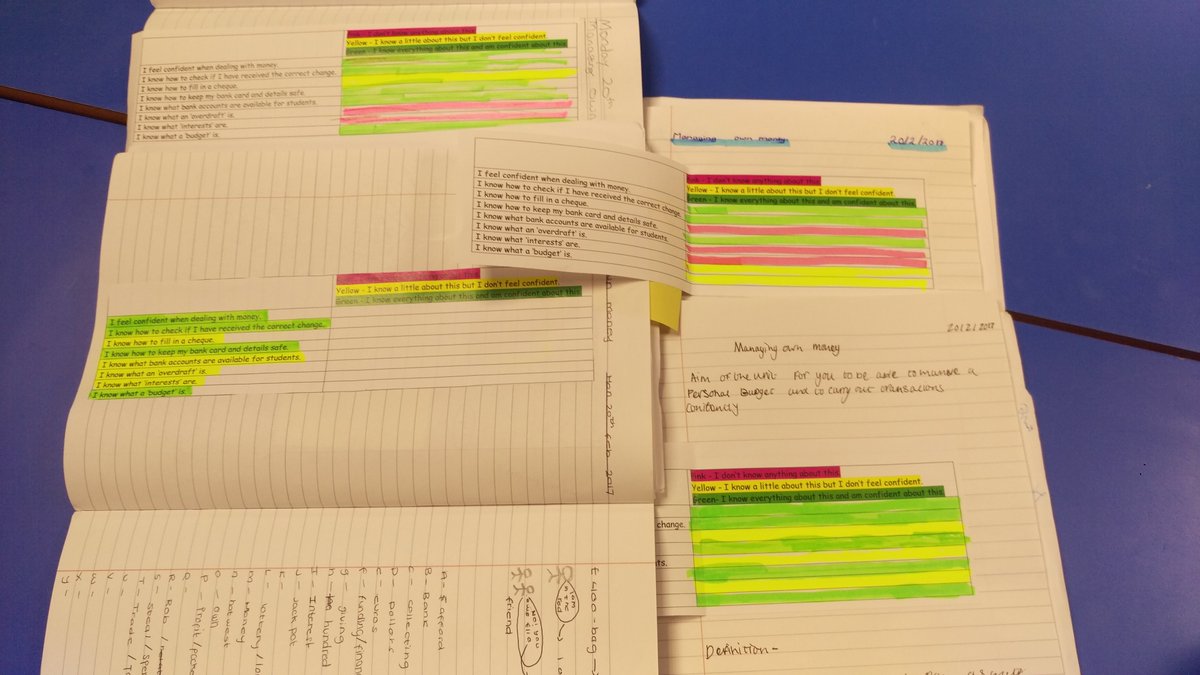 Pink - I don't know anything about this
Yellow - I know a little about this but I don't feel confident.
Green - I know everything about this and am confident about this
I feel confident when dealing with money.
I know how to check if I have received the correct change.
I know how to fill in a cheque.
I know how to keep my bank card and details safe.
I know what bank accounts are available for students.
I know what an 'overdraft' is.
I know what 'interests' are.
I know what a 'budget' is.
Monday 20th
Managing own money
20/2/2017
Pink - I don't know anything about this
Yellow - I know a little about this but I don't feel confident.
Green - I know everything about this and am confident about this
I feel confident when dealing with money.
I know how to check if I have received the correct change.
I know how to fill in a cheque.
I know how to keep my bank card and details safe.
I know what bank accounts are available for students.
I know what an 'overdraft' is.
I know what 'interests' are.
I know what a 'budget' is.
Yellow - I know a little about this but I don't feel confident.
Green - I know everything about this and am confident about this
I feel confident when dealing with money.
I know how to check if I have received the correct change.
I know how to fill in a cheque.
I know how to keep my bank card and details safe.
I know what bank accounts are available for students.
I know what an 'overdraft' is.
I know what 'interests' are.
I know what a 'budget' is.
money
20th Feb 2017
20/2/2017
Managing own money
Aim of the unit For you to be able to manage a
Personal Budget and to carry out transactions
Pink - I don't know anything about this
Yellow - I know a little about this but I don't feel confident.
Green- I know everything about this and am confident about this
change.
ts.
Definition -
£400 - bag
friend
A - afford
B - Bank
C - collecting
D - Dollars
E - euros
F - funding/finan
g - giving
h - hundred
I - Interest
J - Jack pot
K -
L - lottery/lo
M - Money
n - natwest
O - own
P - Profit/
Q -
R - Rob /
S - Steal / spe
T - Trade /
U -
V -
W -
X -
Y -